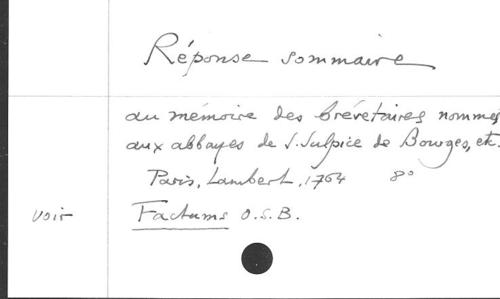 Réponse sommaire
au mémoire des brévetaires nommés
aux abbayes de S. Sulpice de Bourges, etc.
Paris, Lambert, 1764 8°
voir Factums O.S.B.